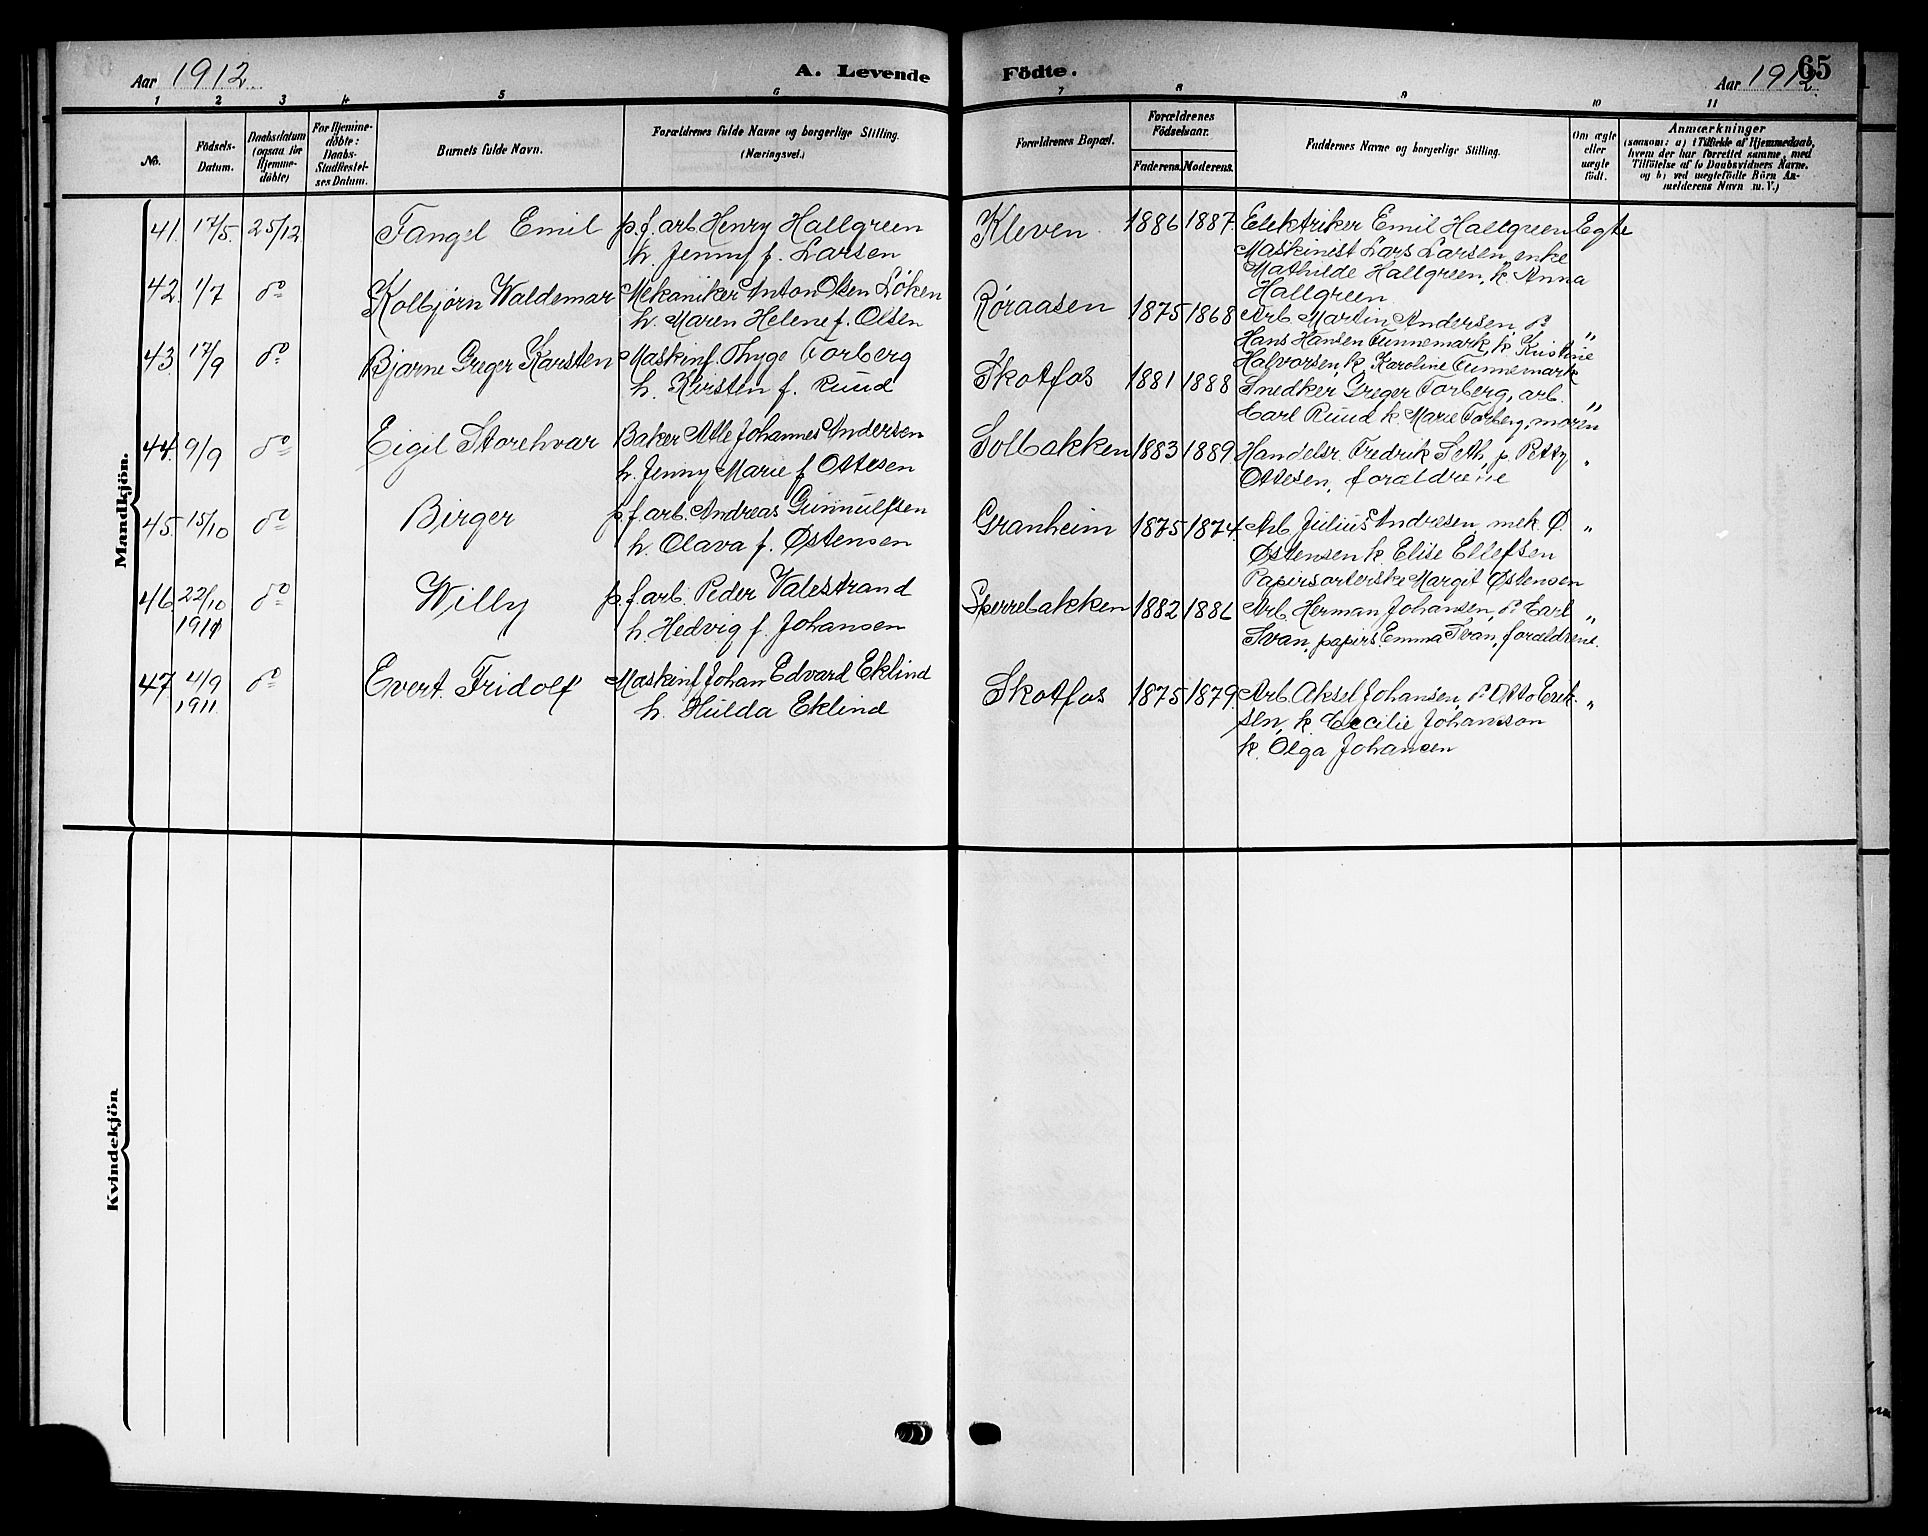 Aar 1912. A. Levende Födte. Aar 1912. 65
1 2 3 4 5 6 7 8 9 10 11
No.
Födsels-Datum.
Daabsdatum (ogsaa for Hjemme-döbte)
For Hjemme-döbte: Daabs-Stadfestel-ses Datum.
Barnets fulde Navn.
Forældrenes fulde Navne og borgerlige Stilling. (Næringsvei.)
Forældrenes Bopæl.
Forældrenes Födselsaar.
Faderens. Moderens.
Faddernes Navne og borgerlige Stilling.
Om ægte eller uægte födt.
Anmærkninger
(saasom: a) i Tilfælde af Hjemmedaab,
hvem der har forrettet samme, med
Tilföielse af to Daabsvidners Navne.
og b) ved uægtefödte Börn An-
melderens Navn m. V.)
Mandkjön.
41. 17/5. 25/12 Fangel Emil p.f. arb Henry Hallgreen Kleven 1886 1887. Elektriker Emil Hallgreen Egte
h. Jenny f. Larsen Maskinist Lars Larsen, enke
Mathilde Hallgreen, k. Anna
Hallgreen
42. 1/7 do Kolbjørn Waldemar Mekaniker Anton Olsen Løken Røraasen 1875 1868 Arb. Martin Andersen, do "
h. Maren Helene f. Olsen Hans Hansen Tunnemark, k. Kristine
Halvorsen, k. Karoline Tunnemark
43. 17/9 do Bjarne Greger Karsten Maskinf. Thyge Torberg Skotfos 1881 1888 Snedker Greger Torberg, arb. "
h. Kirsten f. Ruud Carl Ruud k. Marie Torberg, moren
44. 9/9 do Eigil Storehvar Baker Atle Johannes Andersen Solbakken 1883 1889. Handelsr. Fredrik Seth, p. Petty "
h. Jenny Marie f Ottesen Ottesen, forældrene
45. 15/10 do Birger p.f. arb. Andreas Gunnulfsen Granheim 1875 1874. Arb. Julius Andresen, mek. Ø. "
h. Olava f. Østensen Østensen k. Elise Ellefsen
Papirsorterske Margit Østensen
46. 22/10 1911 do Willy p.f. arb. Peder Valestrand Sperrebakken 1882 1886 Arb. Herman Johansen, do Carl "
h. Hedvig f. Johansen Svan, papirs. Emma Svan, forældrene.
47. 4/9 1911. do Evert Fridolf Maskinf Johan Edvard Eklind Skotfos 1875 1879. Arb. Aksel Johansen, do Otto Erik- "
h. Hulda Eklind sen, k. Cecilie Johansson
k. Olga Johansen
Kvindekjön